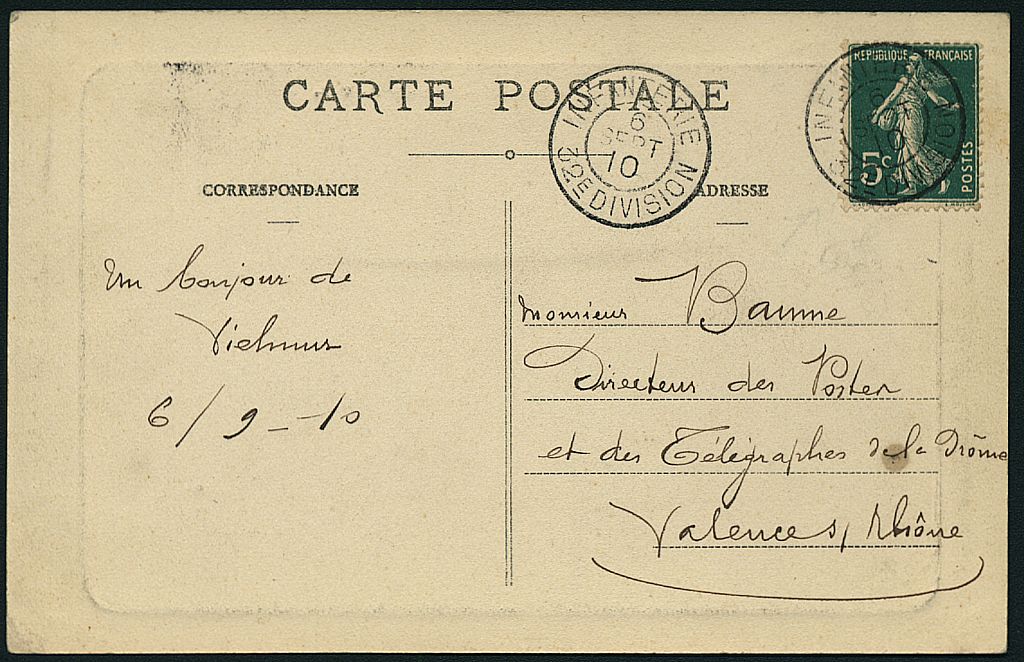 CARTE POSTALE
INFANTERIE
6
SEPT
10
32E DIVISION
REPUBLIQUE FRANÇAISE
5c
POSTES
INFANTERIE
6
SEPT
10
32E DIVISION
CORRESPONDANCE
ADRESSE
Un bonjour de
Vielmur
6/9-10
Monsieur Baume
Directeur des Postes
et des Télégraphes de la Drôme
Valence s/ Rhône